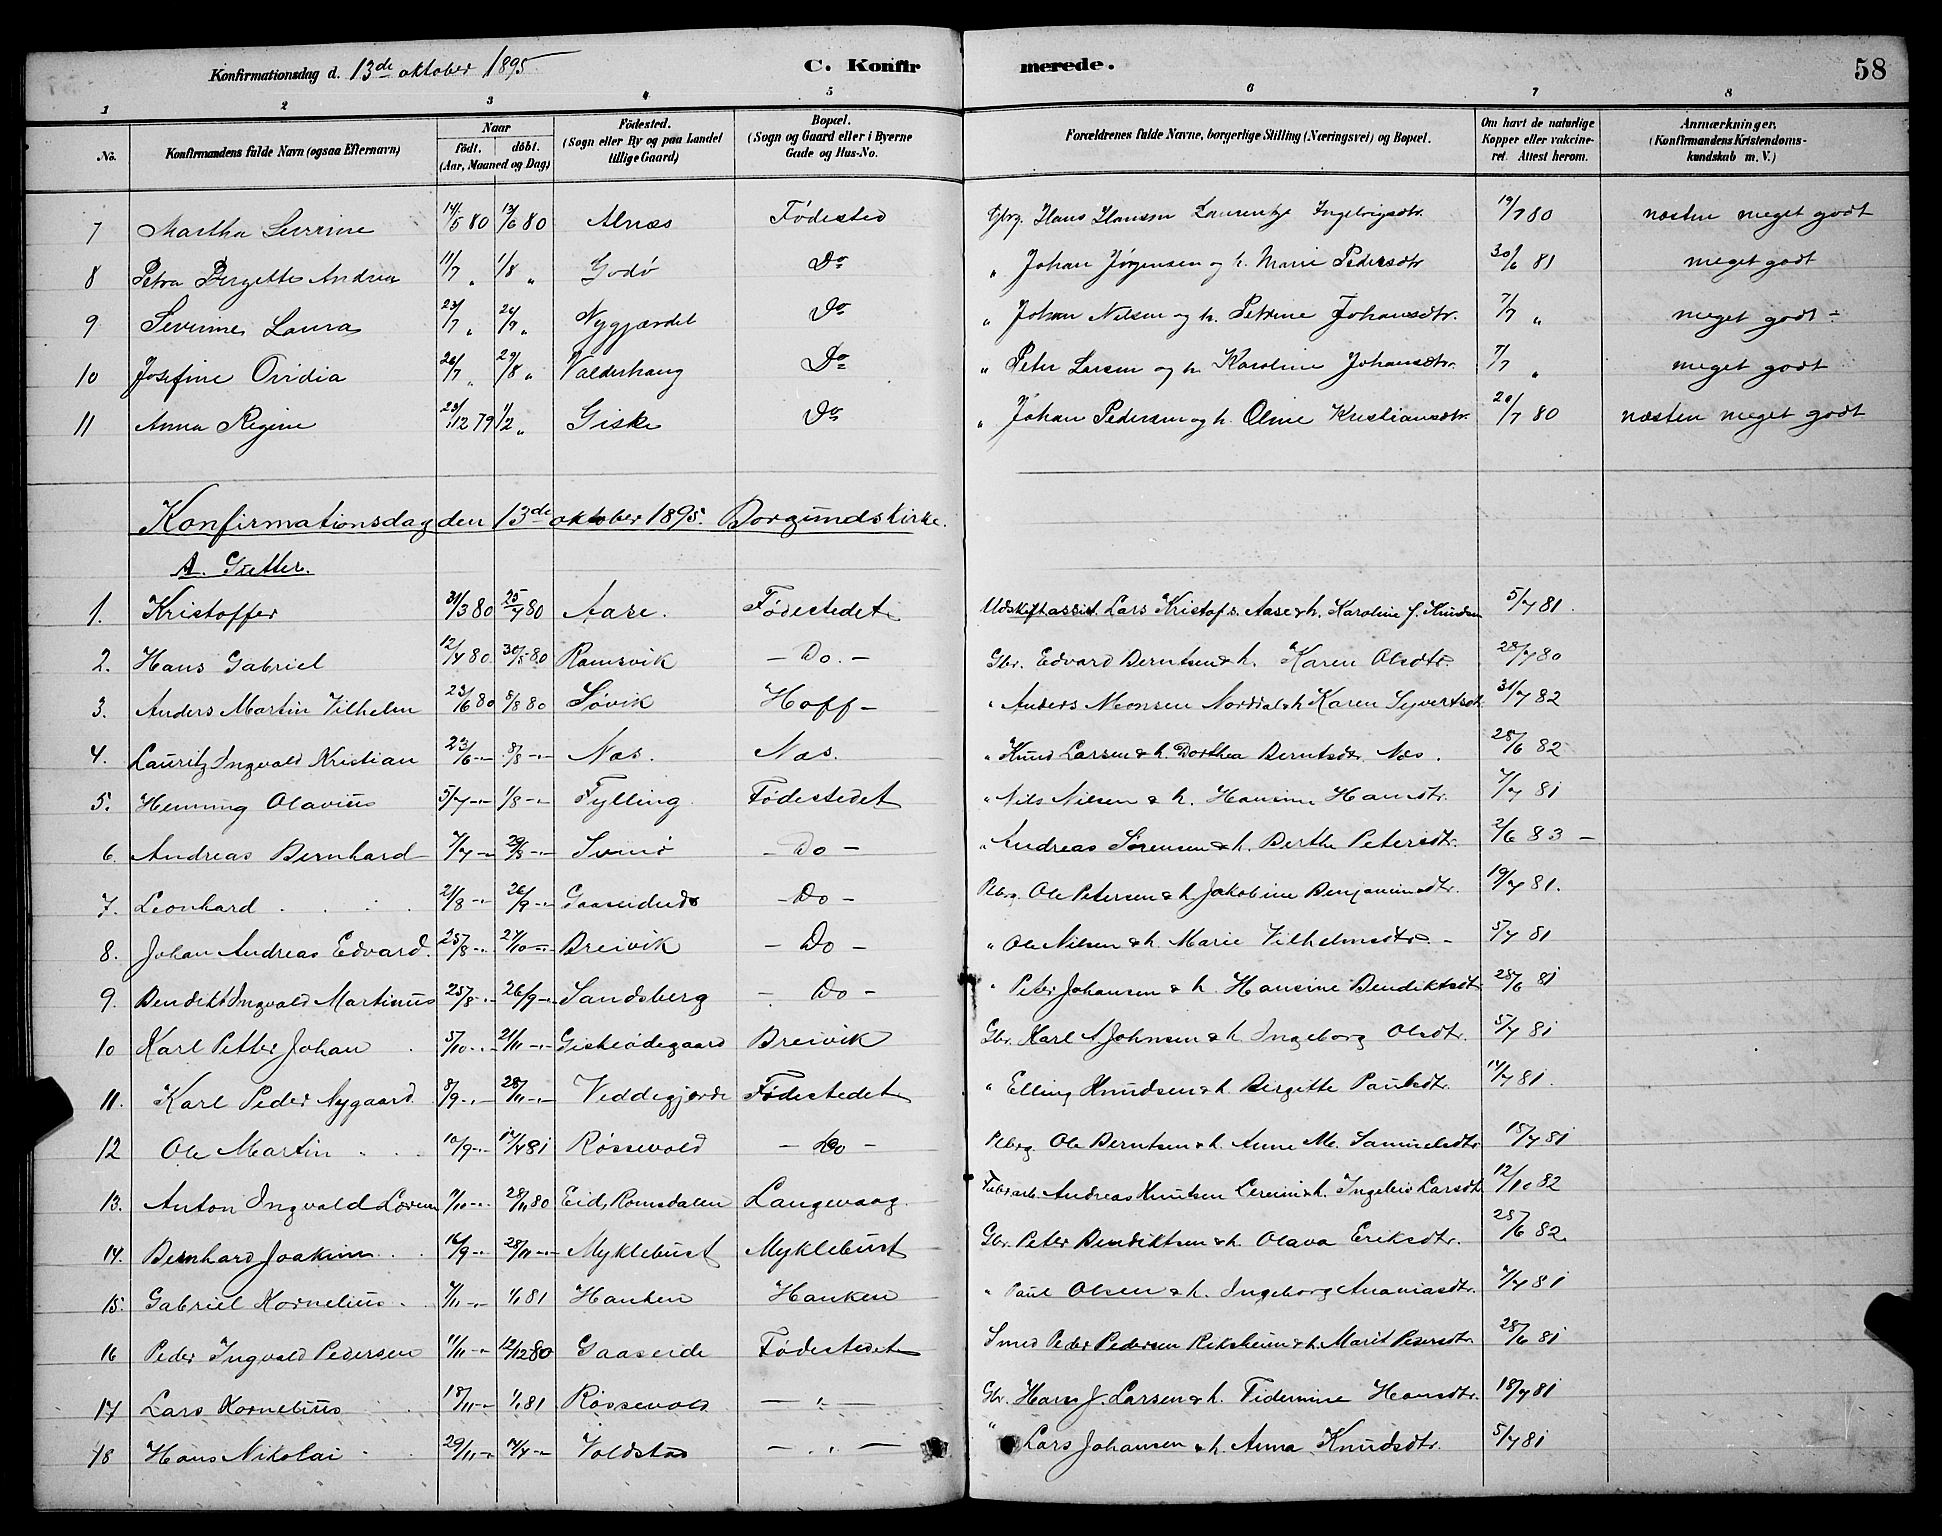 Konfirmationsdag d. 13de oktober 1895 C. Konfirmerede. 58
1 2 3 4 5 6 7 8
No. Konfirmandens fulde Navn (ogsaa Efternavn) Naar født. døbt. (Aar, Maaned og Dag) Fødested. (Sogn eller By og paa Landet tillige Gaard) Bopæl. (Sogn og Gaard eller i Byerne Gade og Hus-No. Forældrenes fulde Navne, borgerlige Stilling (Næringsvei) og Bopæl. Om havt de naturlige Kopper eller vakcineret. Attest herom. Anmærkninger. (Konfirmandens Kristendomskundskab m. V.)
7 Martha Severine 14/5 80 13/6 80 Alnæs Fødested Gbrg. Hans Hansen Laurentze Ingebrigsdtr. 19/7 80 næsten meget godt
8 Petra Bergette Andrea 11/7 " 1/8 " Godø Do " Johan Jørgensen og h. Marie Pedersdtr 30/6 81 meget godt
9 Severine Laura 23/7 " " Nygjærdet Do " Johan Nilsen og h. Petrine Johansdtr. 7/7 " meget godt -
10 Josefine Ovidia 26/7 " 29/8 " Valderhaug Do " Peter Larsen og h. Karoline Johansdtr. 7/7 " meget godt
11 Anna Regine 23/12 79 1/2 " Giske Do " Johan Pedersen og h. Oline Kristiansdtr. 20/7 80 næsten meget godt
Konfirmationsdag den 13de oktober 1895. Borgunds Kirke.
A. Gutter.
1. Kristoffer 31/3 80 25/4 80 Aase. Fødestedet Udskiftassist. Lars Kristofs. Aase & h. Karoline f. Knudsen 5/7 81.
2. Hans Gabriel 12/4 80 30/5 80 Ramsvik - Do. - Gbr. Edvard Berntsen & h. Karen Olsdtr. 28/7 80
3. Anders Martin Vilhelm 23/6 80 8/8 80 Søvik Hoff - " Anders Monsen Norddal & h Karen Syvertsdtr. 31/7 82
4. Lauritz Ingvald Kristian 23/6 -"- 8/8 -"- Næs. Næs. " Knud Larsen & h. Dorthea Berntsdtr. Næs. 28/6 82
5. Henning Olavius 5/7 -"- 1/8 -"- Fylling Fødestedet " Nils Nilsen & h. Hansine Hansdtr. 7/7 81
6. Andreas Bernhard 7/7 -"- 29/8 -"- Svinø - Do - " Andreas Sørensen & h. Berthe Petersdtr. 2/6 83 -
7. Leonhard 21/8 -"- 26/9 -"- - Do - Plbrg. Ole Petersen & h Jakobine Benjaminsdtr. 19/7 81.
8. Johan Andreas Edvard. 25/8 -"- 24/10 -"- Breivik - Do - " Ole Nilsen & h. Marie Vilhelmsdtr. - 5/7 81
9. Bendikt Ingvald Martinus 25/8 -"- 26/9 -"- Sandsberg - Do - " Peter Johansen & h. Hansine Bendiktsdtr 28/6 81
10 Karl Petter Johan 5/10 -"- 21/11 -"- Giskeødegaard Breivik Gbr. Karl A Johnsen & h Ingeborg Olsdtr. 5/7 81
11. Karl Peder Nygaard 8/9 -"- 28/11 -"- Veddegjerde Fødestedet " Elling Knudsen & h Bergitte Paulsdtr. 14/7 81.
12 Ole Martin 10/9 -"- 17/4 81 Røssevold - Do - Plbrg. Ole Berntsen & h. Anne M. Samuelsdtr 18/7 81
13. Anton Ingvald Lorens /11 -"- 28/11 80 Eid, Romsdalen Langevaag Fabr.arb. Andreas Knutsen & h. Larsdtr 12/10 82
14. Bernhard Joakim 16/9 -"- 28/11 -"- Myklebust Myklebust Gbr. Peter Bendiktsen & h. Olava Eriksdtr. 28/6 82.
15. Gabriel Kornelius 7/11 -"- 1/1 81 Hanken Hanken " Paul Olsen & h. Ingeborg Ananiasdtr. 7/7 81
16 Peder Ingvald Pedersen 11/11 -"- 12/12 80 Gaaseide Fødestedet Smed Peder Pedersen Rekshein & h. Marit Pedersdtr. 28/6 81
17 Lars Kornelius 18/11 -"- 1/1 81 Røssevold - " - Gbr. Hans J. Larsen & h. Hansdtr. 18/7 81
18 Hans Nikolai 29/11 -"- 17/4 -"- Voldstad - " - " Lars Johansen & h. Anna Knudsdtr. 5/7 81